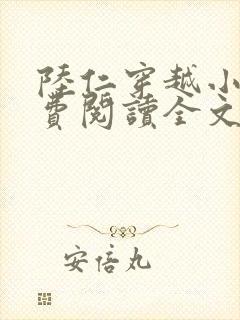 陸仁穿越小
費閱讀全文
安倍丸